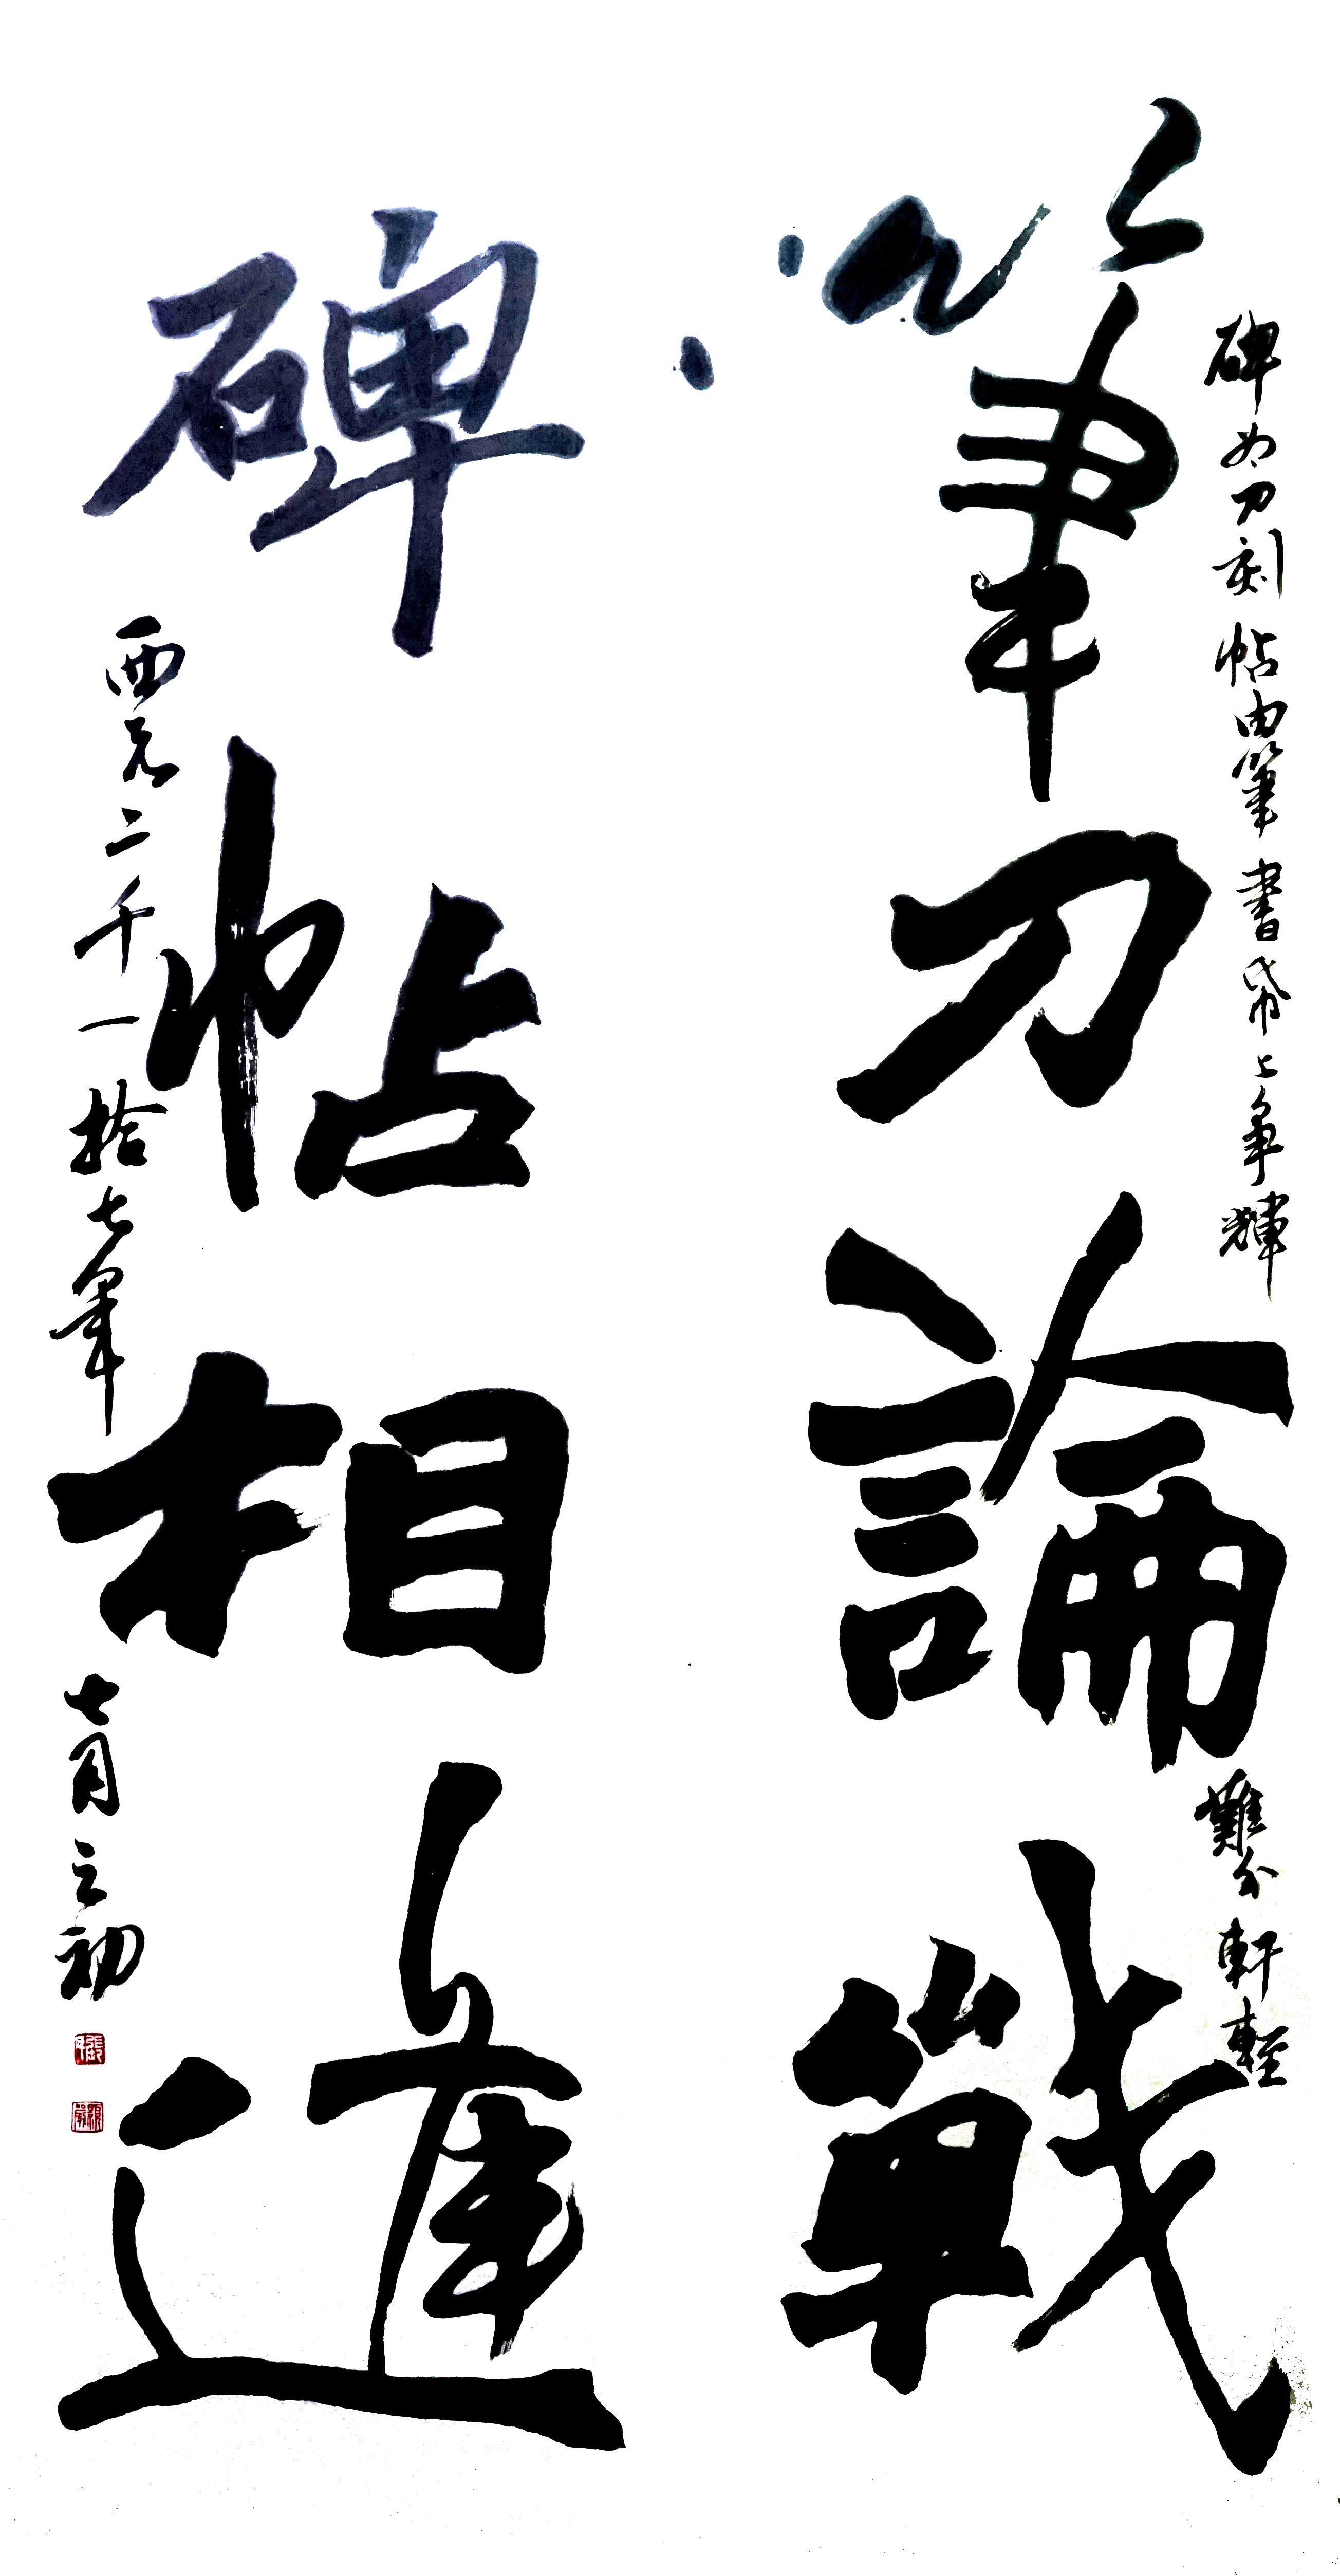 碑如刀刻帖由筆書帋上争輝難分軒輊
筆刀論戰
碑帖相進
西元二千一拾七年七月之初